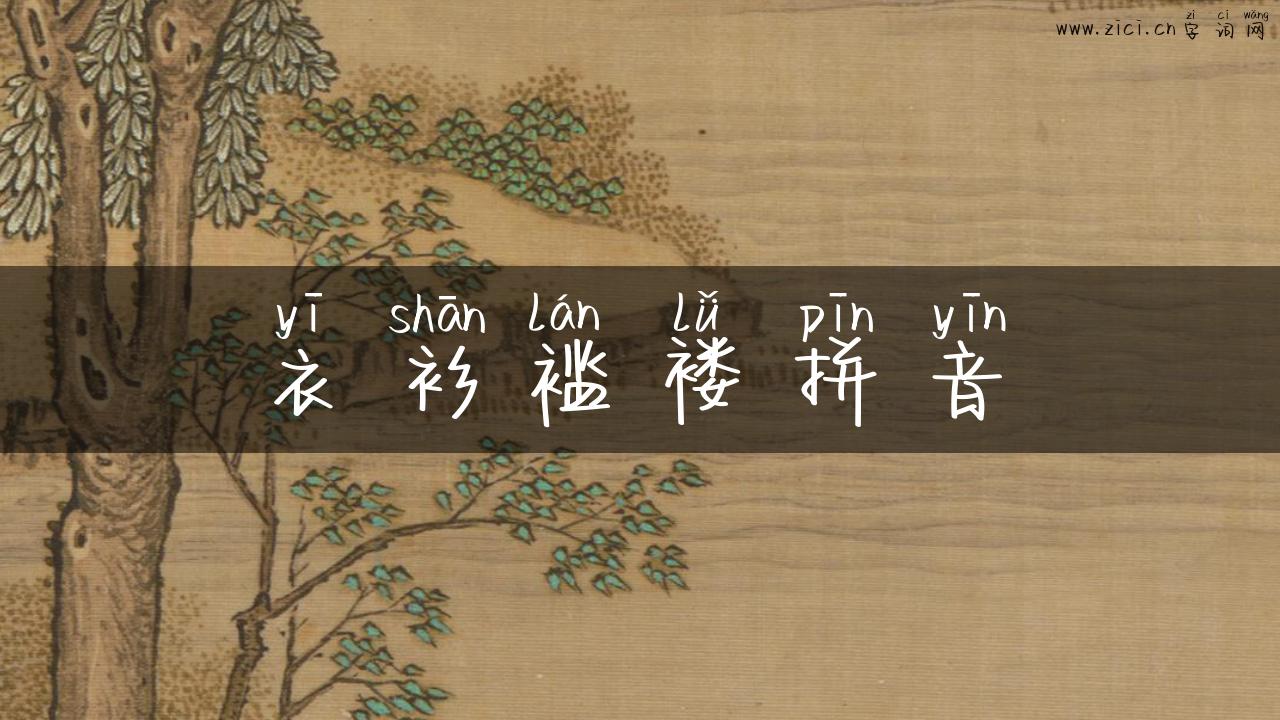 zì cí wǎng
www.zici.cn 字词网
yī shān lán lǚ pīn yīn
衣衫褴褛拼音